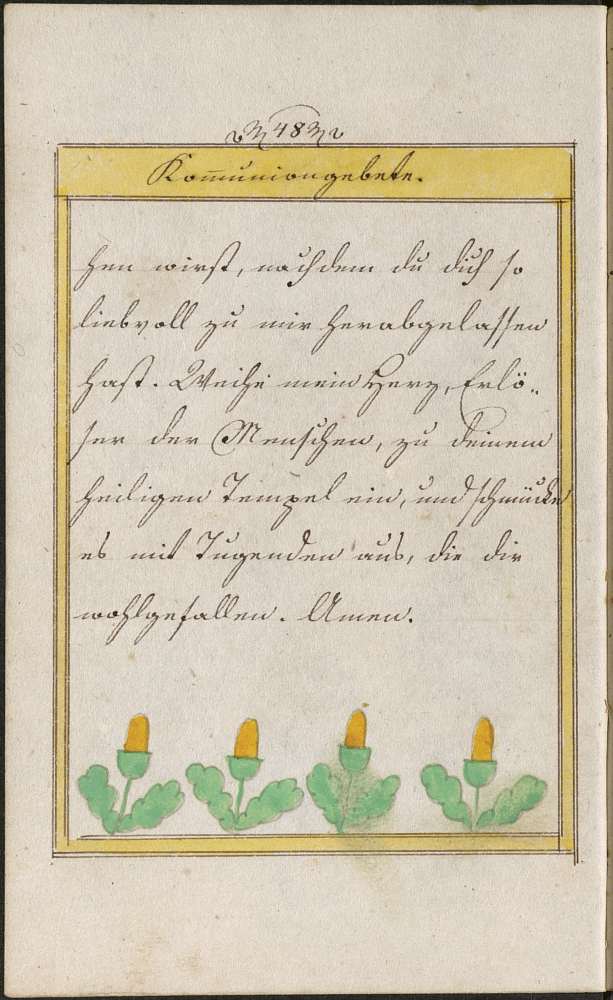 48
Kom̅uniongebete.
hen wirst, nachdem du dich so
liebvoll zu mir herabgelassen
hast. Weihe mein Herz, Erlö„
ser der Menschen, zu deinem
heiligen Tempel ein, und schmücke
es mit Tugenden aus, die dir
wohlgefallen. Amen.